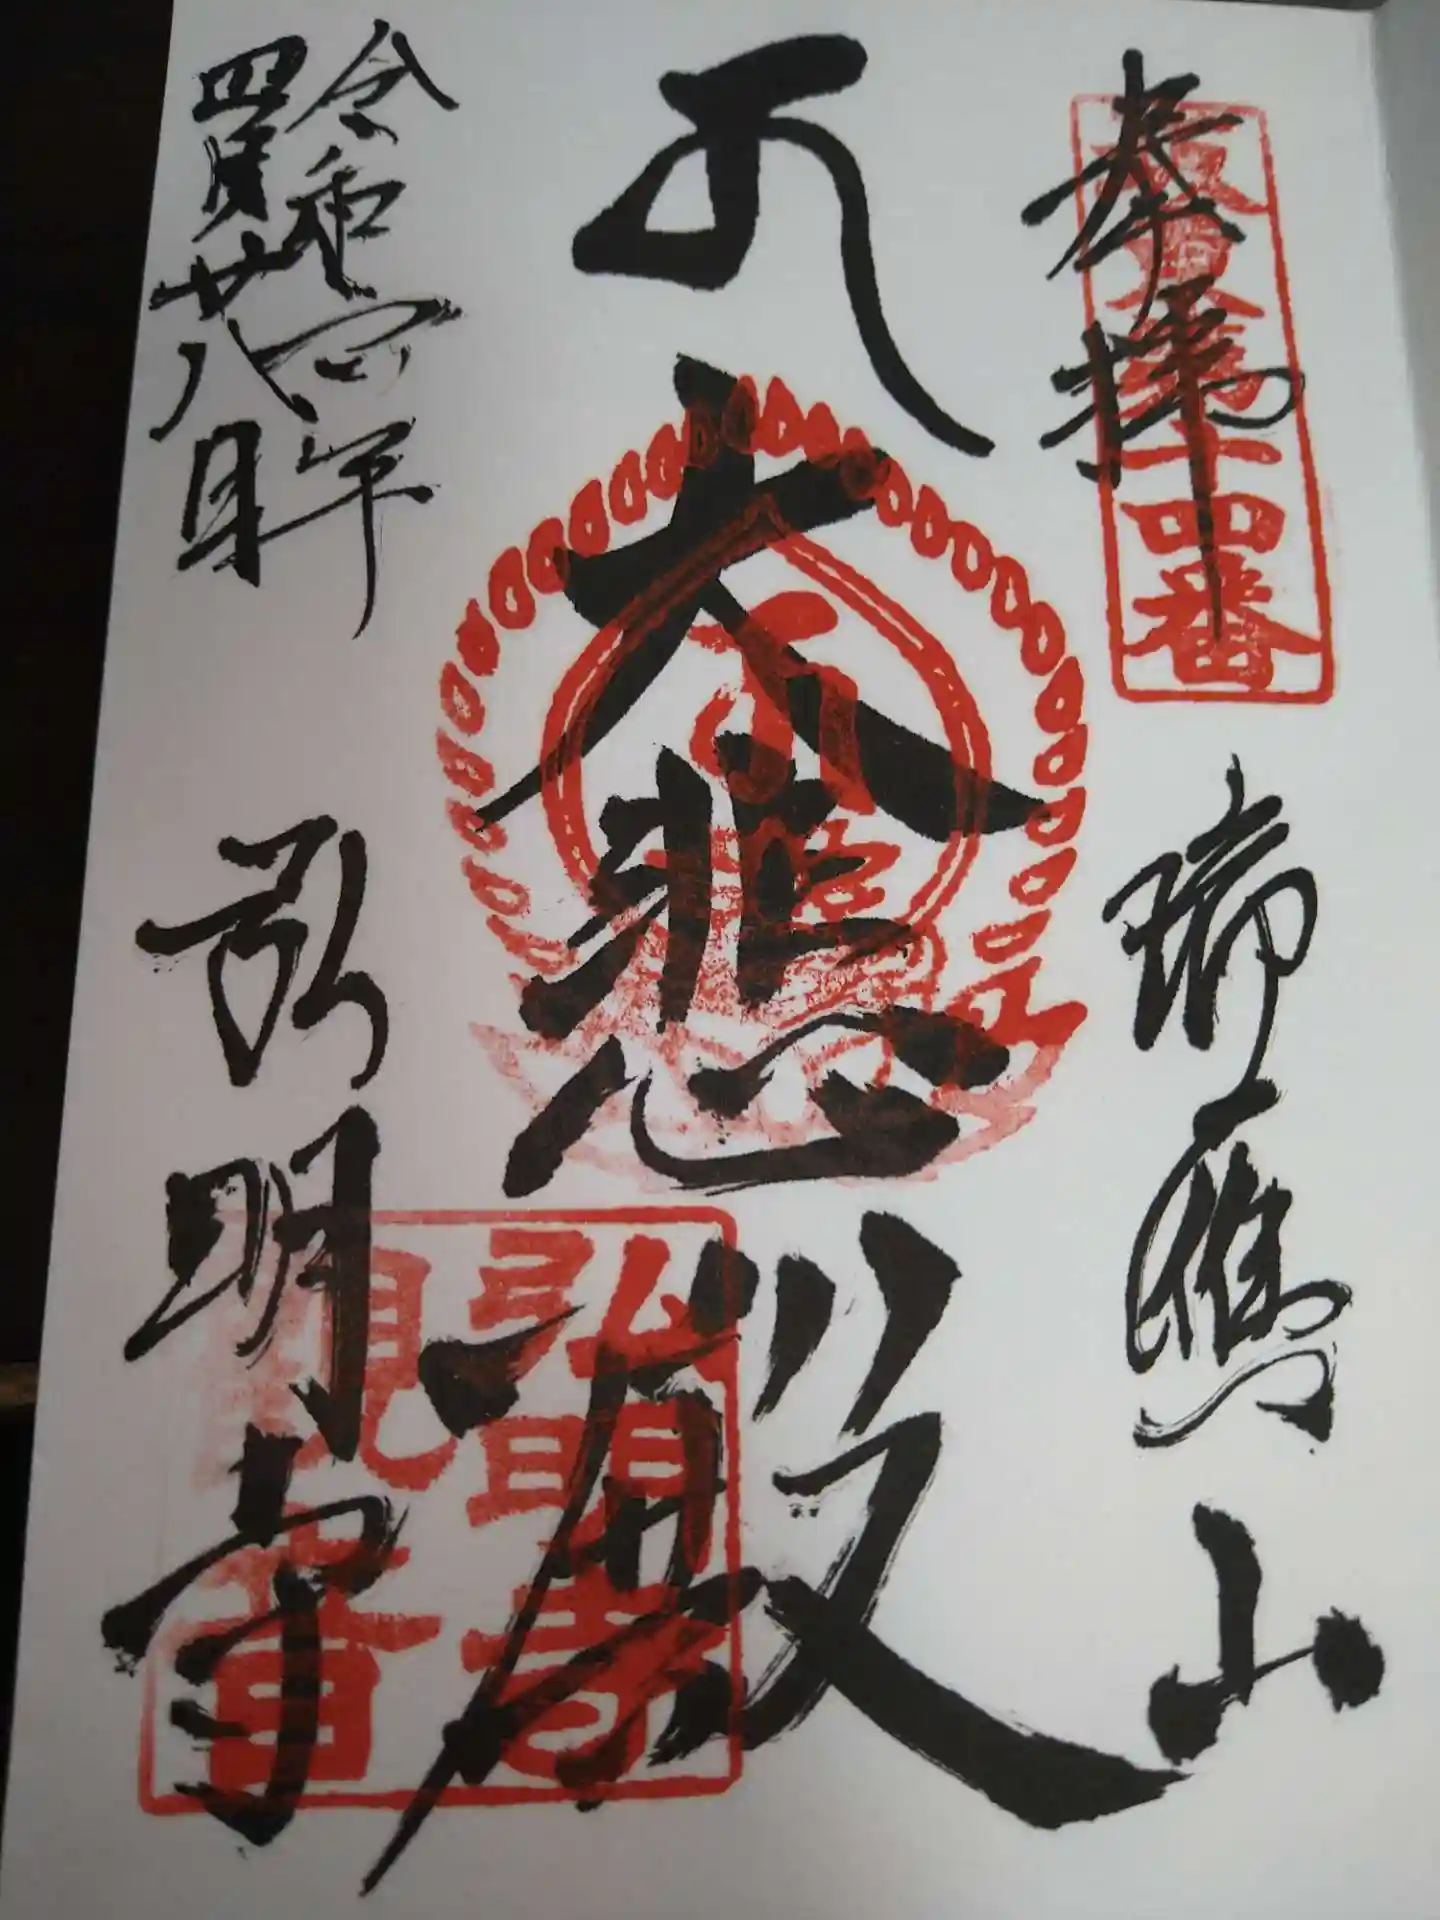 奉拝
坂東十四番
瑞應山
大悲殿
弘明寺
令和四年
四月廿八日
弘明寺
印